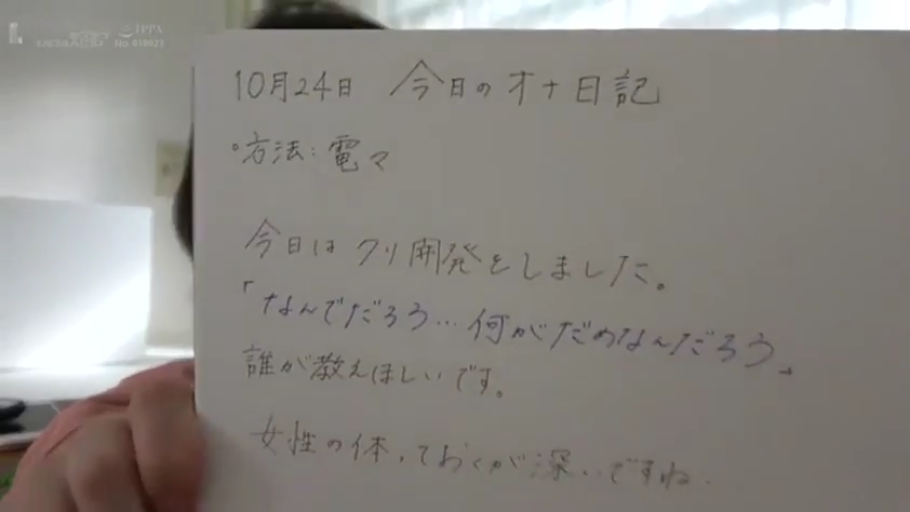 JPPA
10月24日 今日のオナ日記
○方法：電マ
今日はクリ開発をしました。
「なんでだろう…何がだめなんだろう」
誰が教えほしいです。
女性の体、ておくが深いですね.